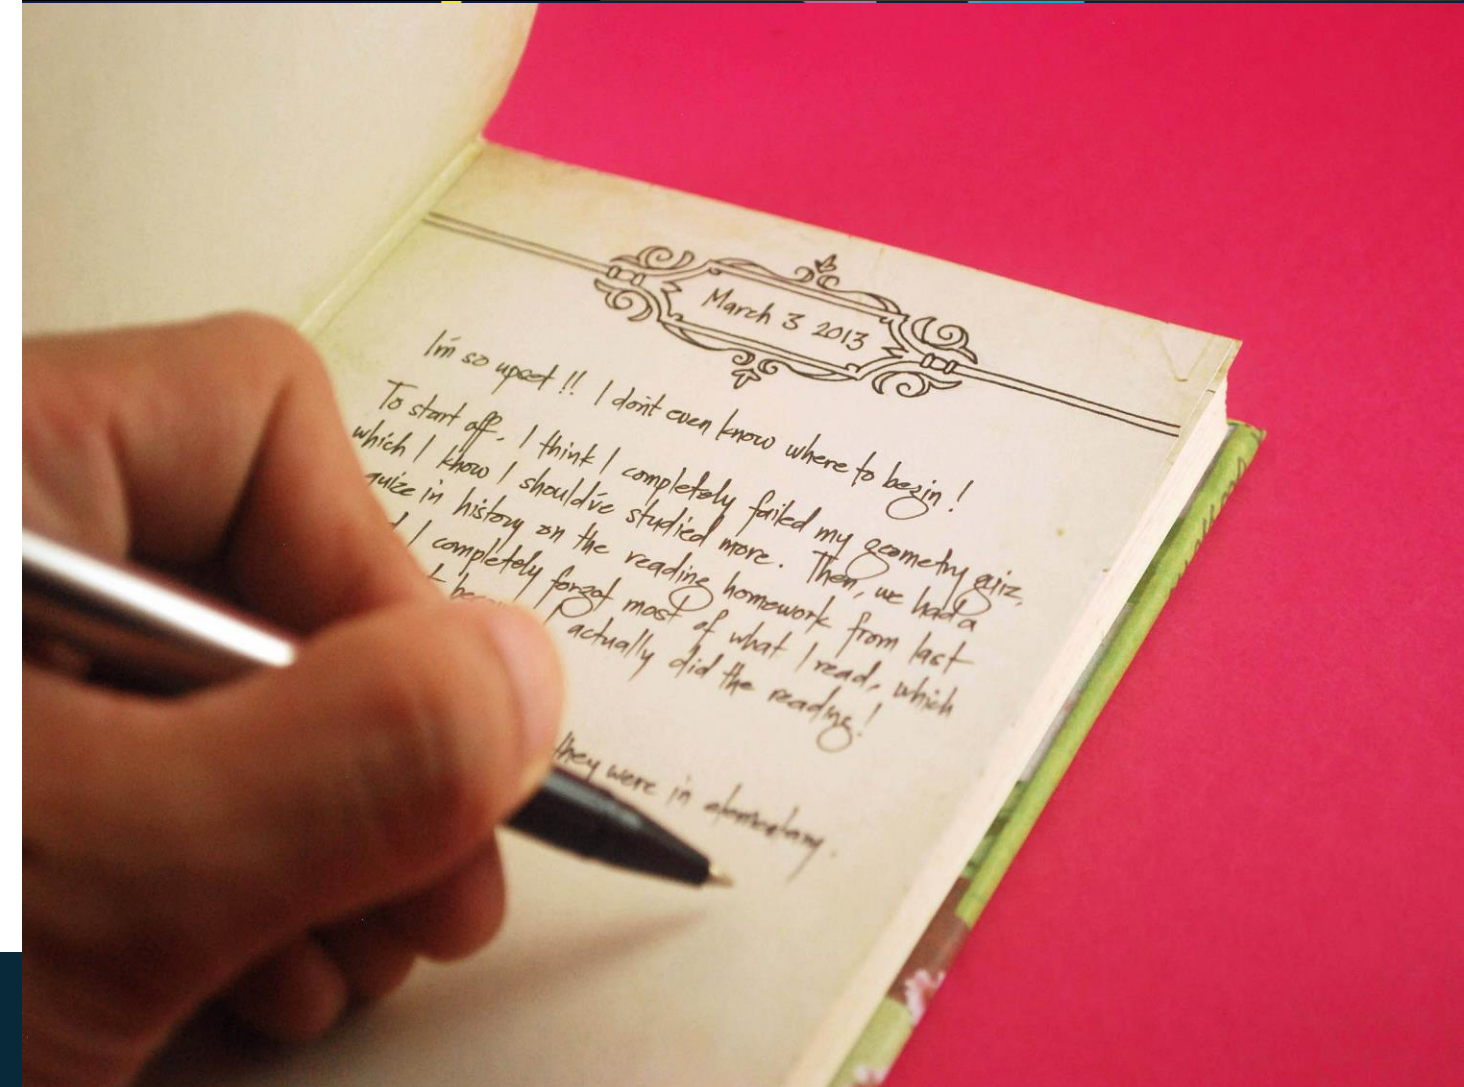 March 3 2013
I'm so upset !! I don't even know where to begin !
To start off, I think I completely failed my geometry quiz,
which I know I should've studied more. Then, we had a
quize in history on the reading homework from last
I completely forgot most of what I read, which
I actually did the reading!
they were in elementary.